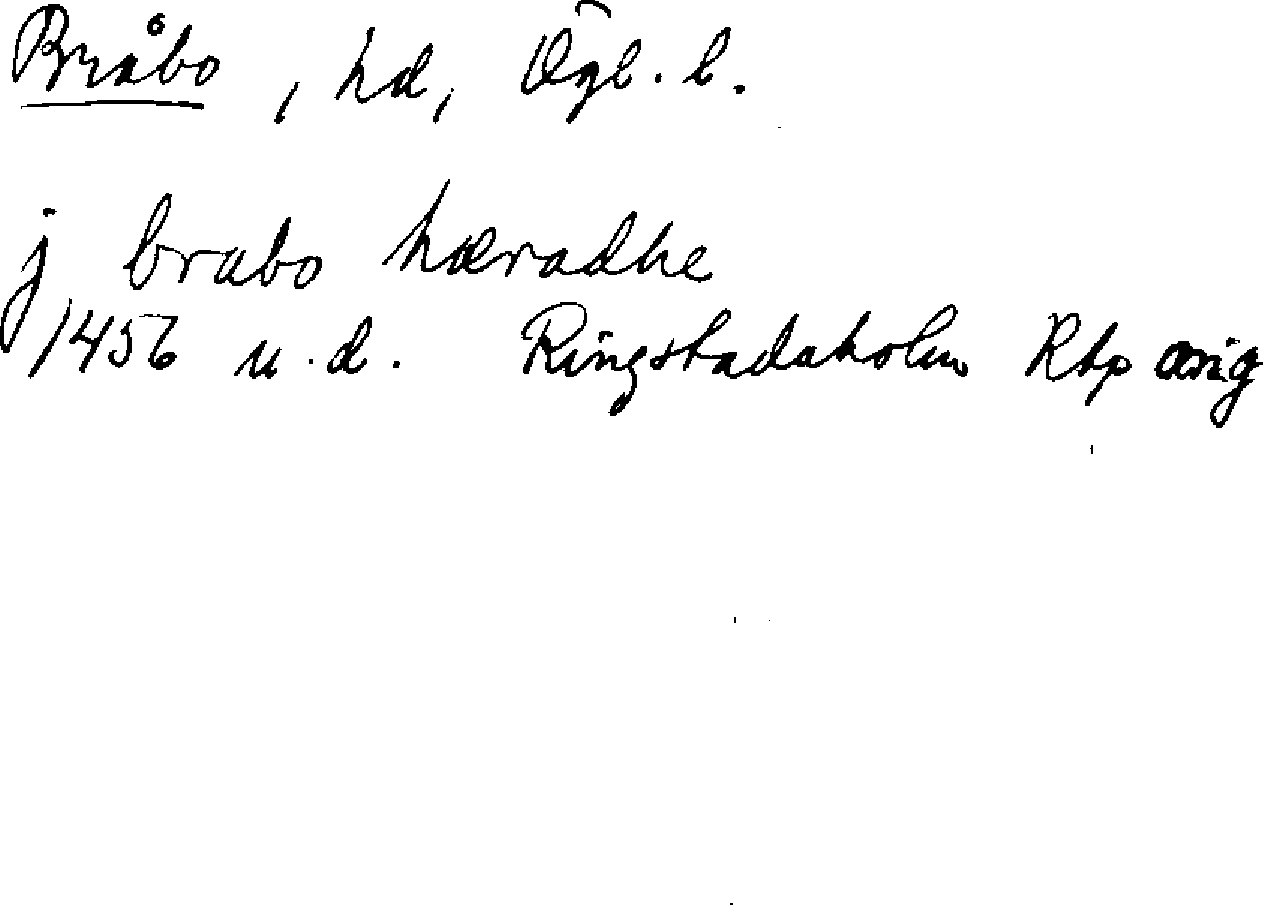 Bråbo, hd, Ögl. l.
j brabo hæradhe
1456 u.d. Ringstadaholm Rtp orig